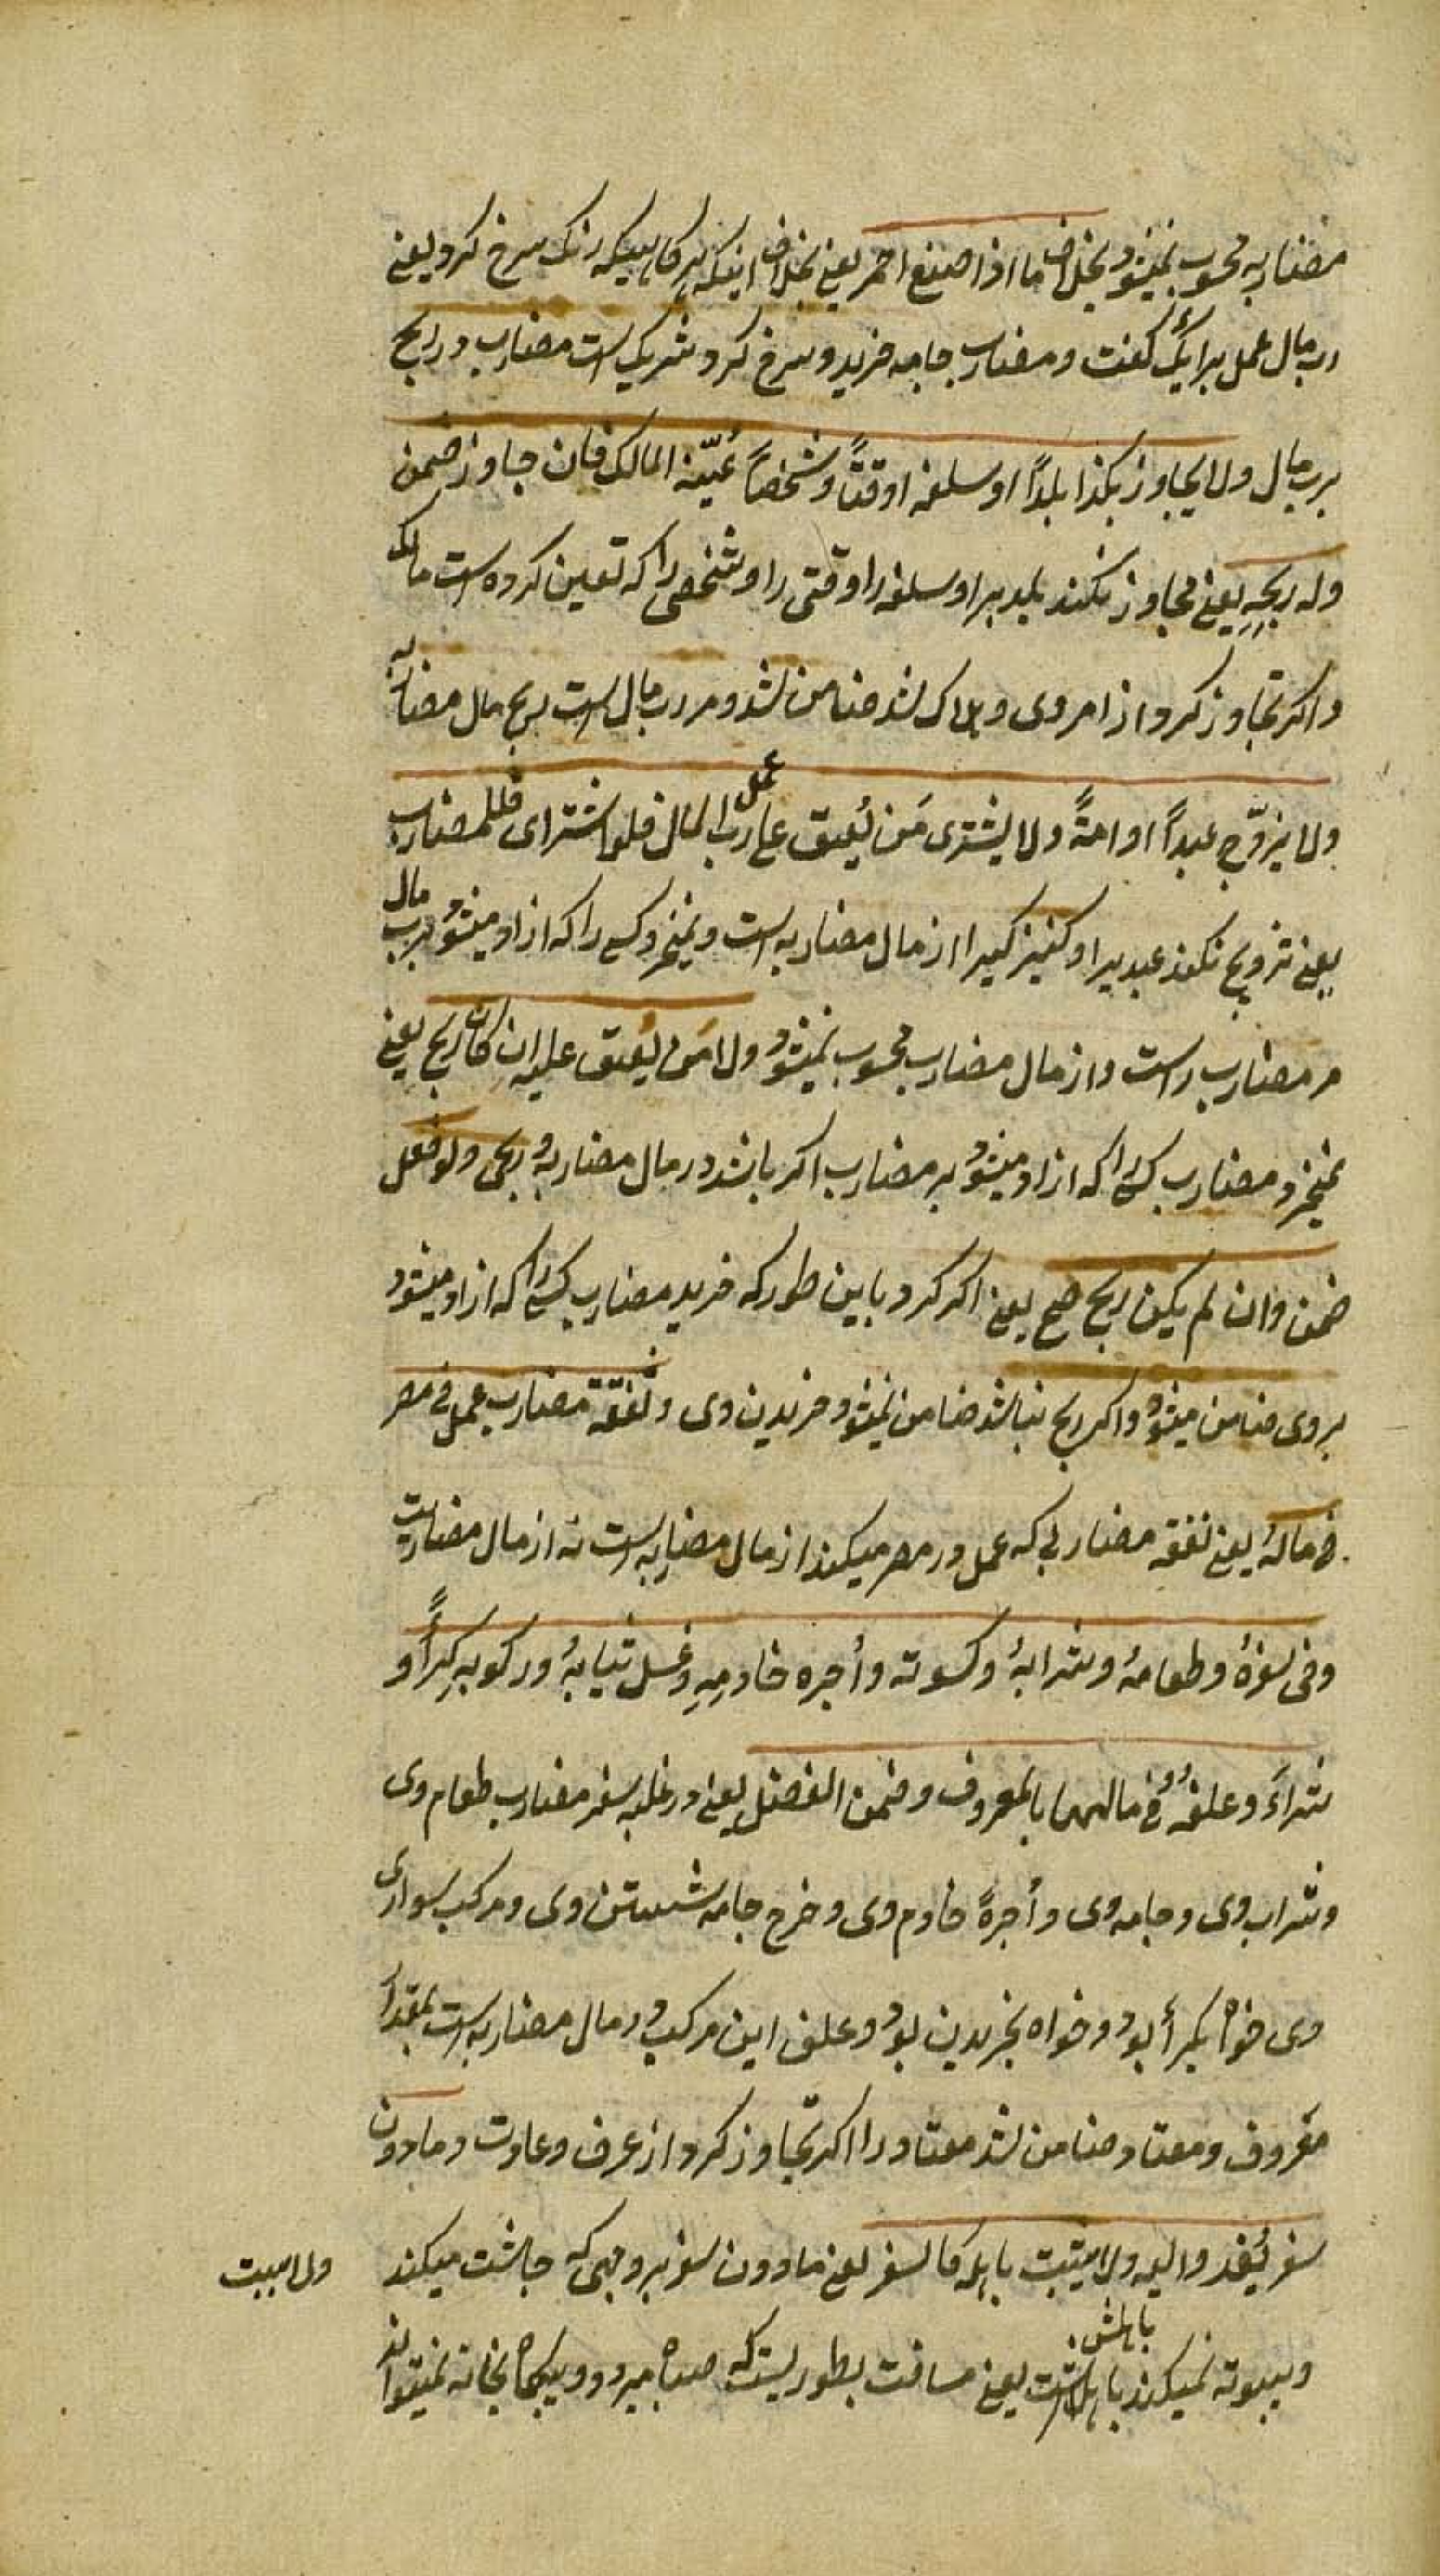 مضاربه محسوب نمیشود بخلاف ما اذا صبغ احمر یعنی بخلاف اینکه هرکاهیکه رنک سرخ کرد یعنی
رب مال عمل برأیک کفت و مضارب جامه خرید و سرخ کرد شریک است مضارب در ربح
برب مال ولا یجاوز بلدا او سلعة او وقتاً و شخصاً عیّنه المالک فان جاوز ضمن
وله ربحه یعنی تجاوز نکند بلدیرا و سلعه را و وقتی را و شخصی را که تعین کرده است مالک
و اکر تجاوز کرد از امر وی و هلاک شد ضامن شد و مر رب مال است ربح مال مضاربه
ولا یزوّج عبداً او امةً ولا یشتری مَن یُعتق علی رب المال عمل فلو اشترای فللمضارب
یعنی تزویج نکند عبدیرا و کنیزکیرا از مال مضاربه است و نمیخرد کسی را که ازاد میشود برب مال
مر مضارب راست و از مال مضارب محسوب نمیشود ولا مَن یُعتق علیه ان کان ربح یعنی
نمیخرد مضارب کسی را که ازاد میشود بر مضارب اکر باشد در مال مضاربه ربحی ولو فعل
ضمن وان لم یکن ربح صح یعنی اکر کرد باین طور که خرید مضارب کسی را که ازاد میشود
بروی ضامن میشود و اکر ربح نباشد ضامن نمیشود خریدن وی و نفقة مضارب عمل فی مصر
فی ماله یعنی نفقه مضاربی که عمل در مصر میکند از مال مضاربه است نه از مال مضاربت
وفی سفره وطعامه وشرابه وکسوته وأجره خادمِهِ وغسل ثیابه ورکوبه کِراًء و
شراءً وعلفه فی مالها بالمعروف وضمن الفضل یعنی در غلبه سفر مضارب طعام وی
و شراب وی و جامه وی و أجرهً خادم وی و خرج جامه شستن وی و مرکب سواری
وی خواه بکرأ بود و خواه بخریدن بود و علف این مرکب در مال مضاربه است بمقدار
معروف و معتاد و ضامن شد معتاد را اکر تجاوز کرد از عرف و عادت و مادون
سفر یُغدو الیه ولا یبیت باهله کالسفر یعنی مادون سفر بروجهی که چاشت میکند
ولا یبیت
و بیبوته نمیکند باهلش یعنی مسافت بطوریست که صباح میرود و بیکاه بخانه نمیتواند
باهلش